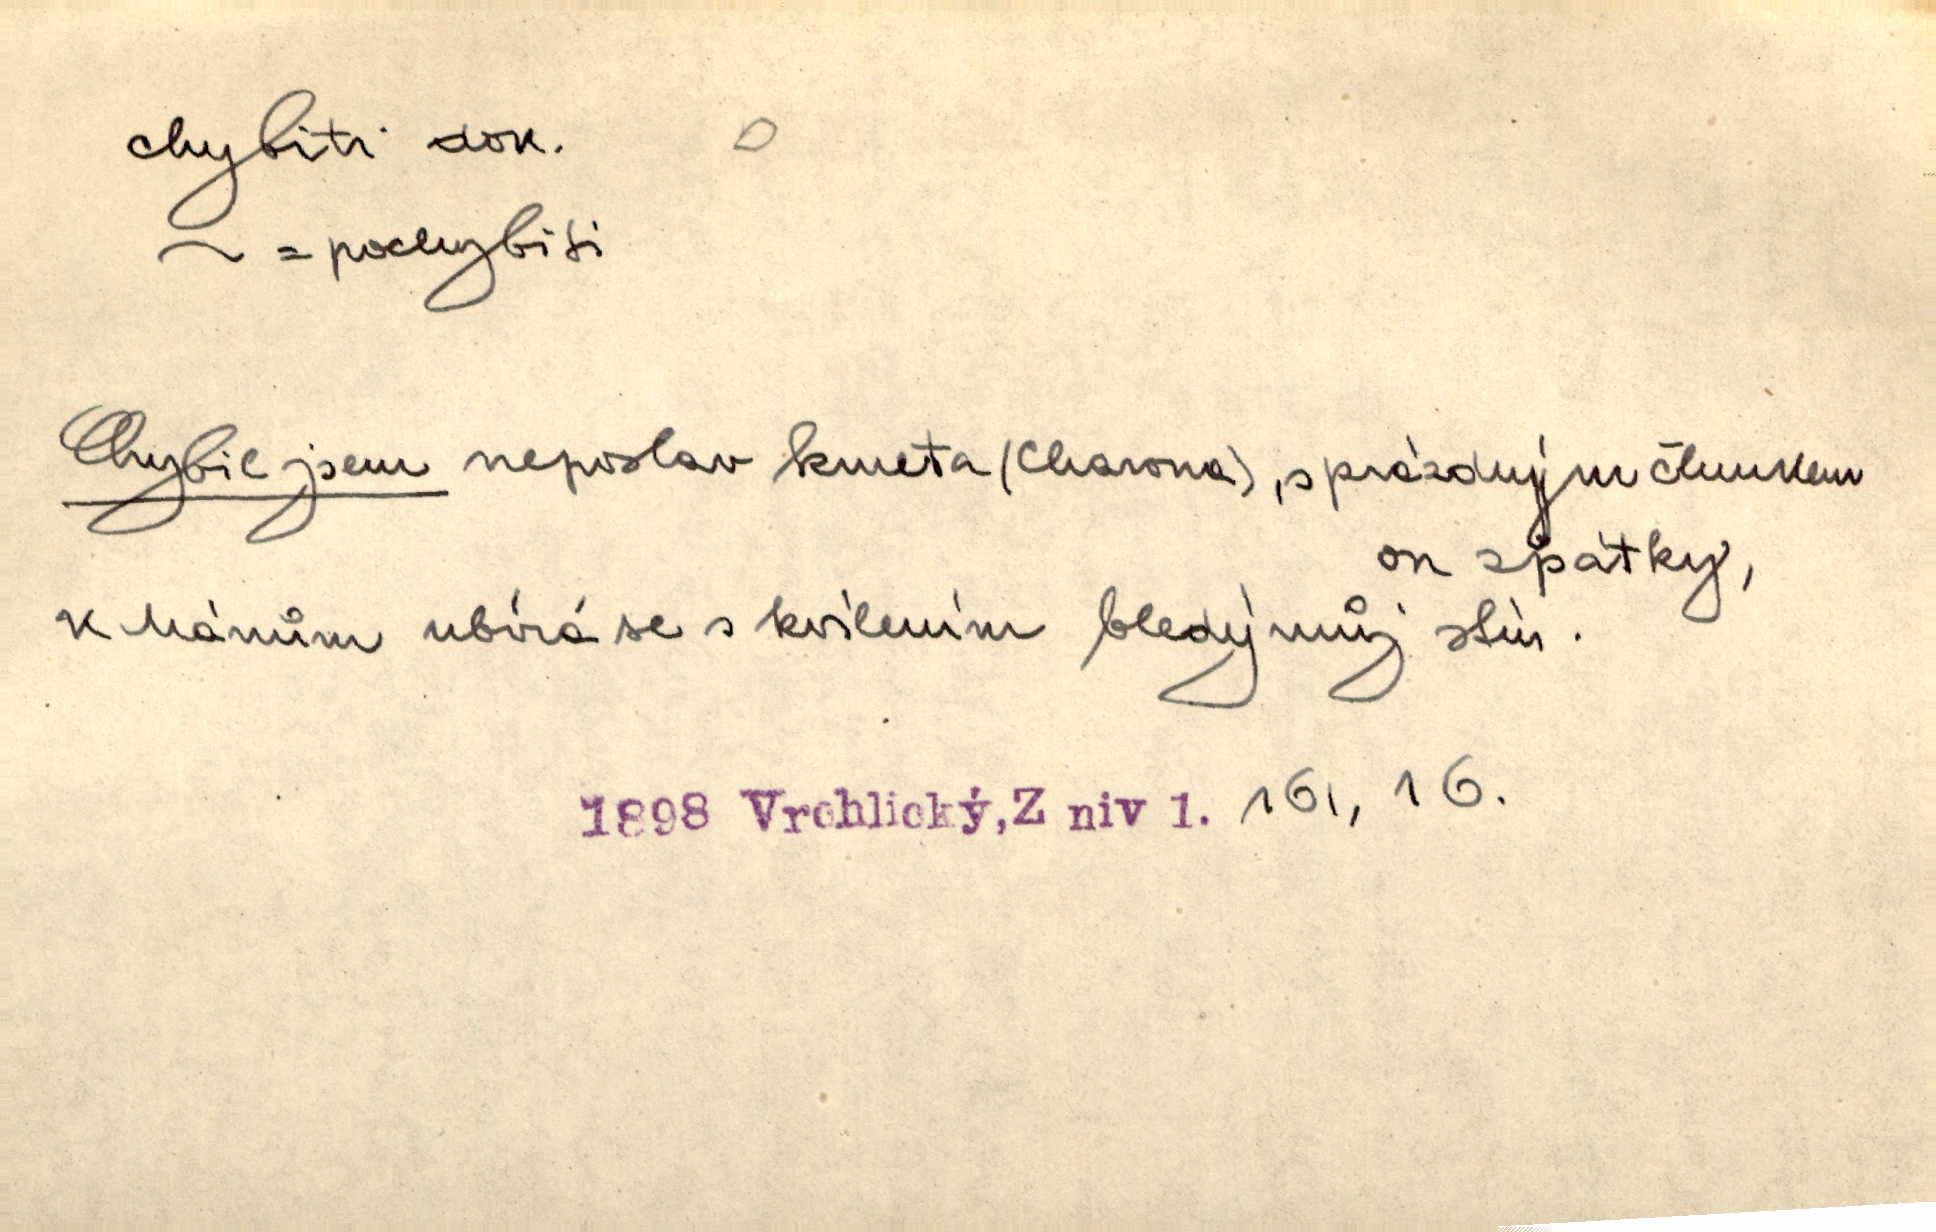 chybiti dok.
~ = pochybiti
Chybil jsem neposlav kmeta (Charona), s prázdným člunkem
on zpátky,
K Mánům ubírá se s kvílením bledý můj stín.
1898 Vrchlický, Z niv 1. 161, 16.